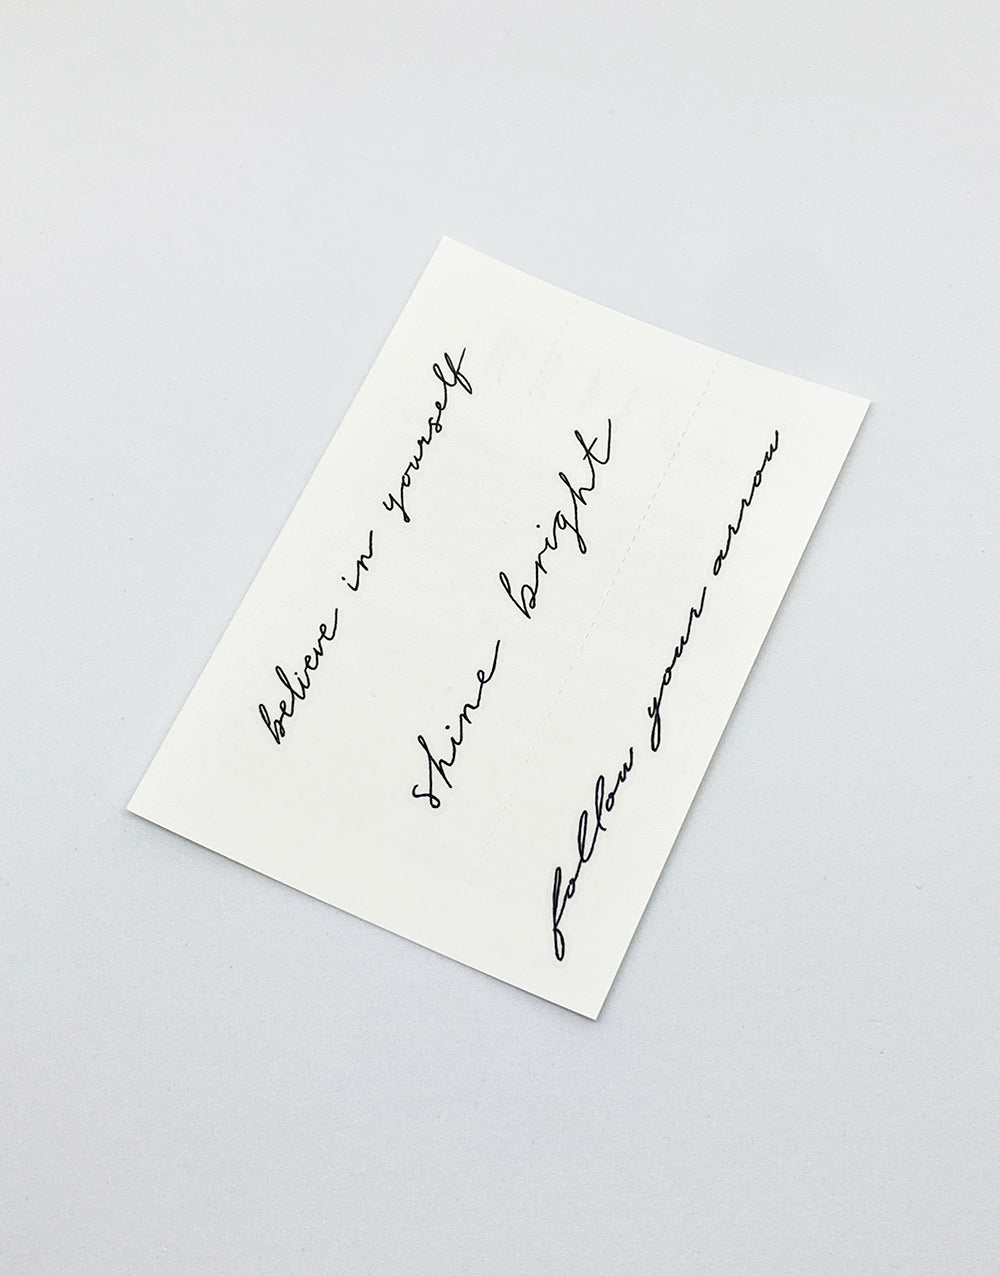 believe in yourself
shine bright
follow your arrow